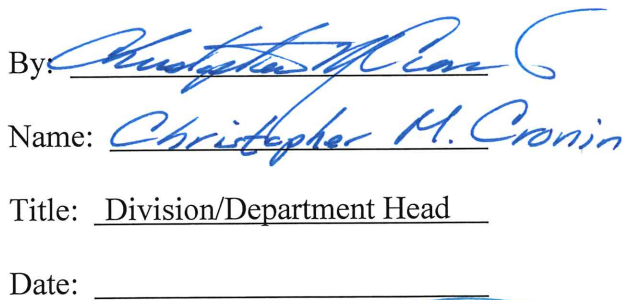 By: Christopher M Cronin
Name: Christopher M. Cronin
Title: Division/Department Head
Date: